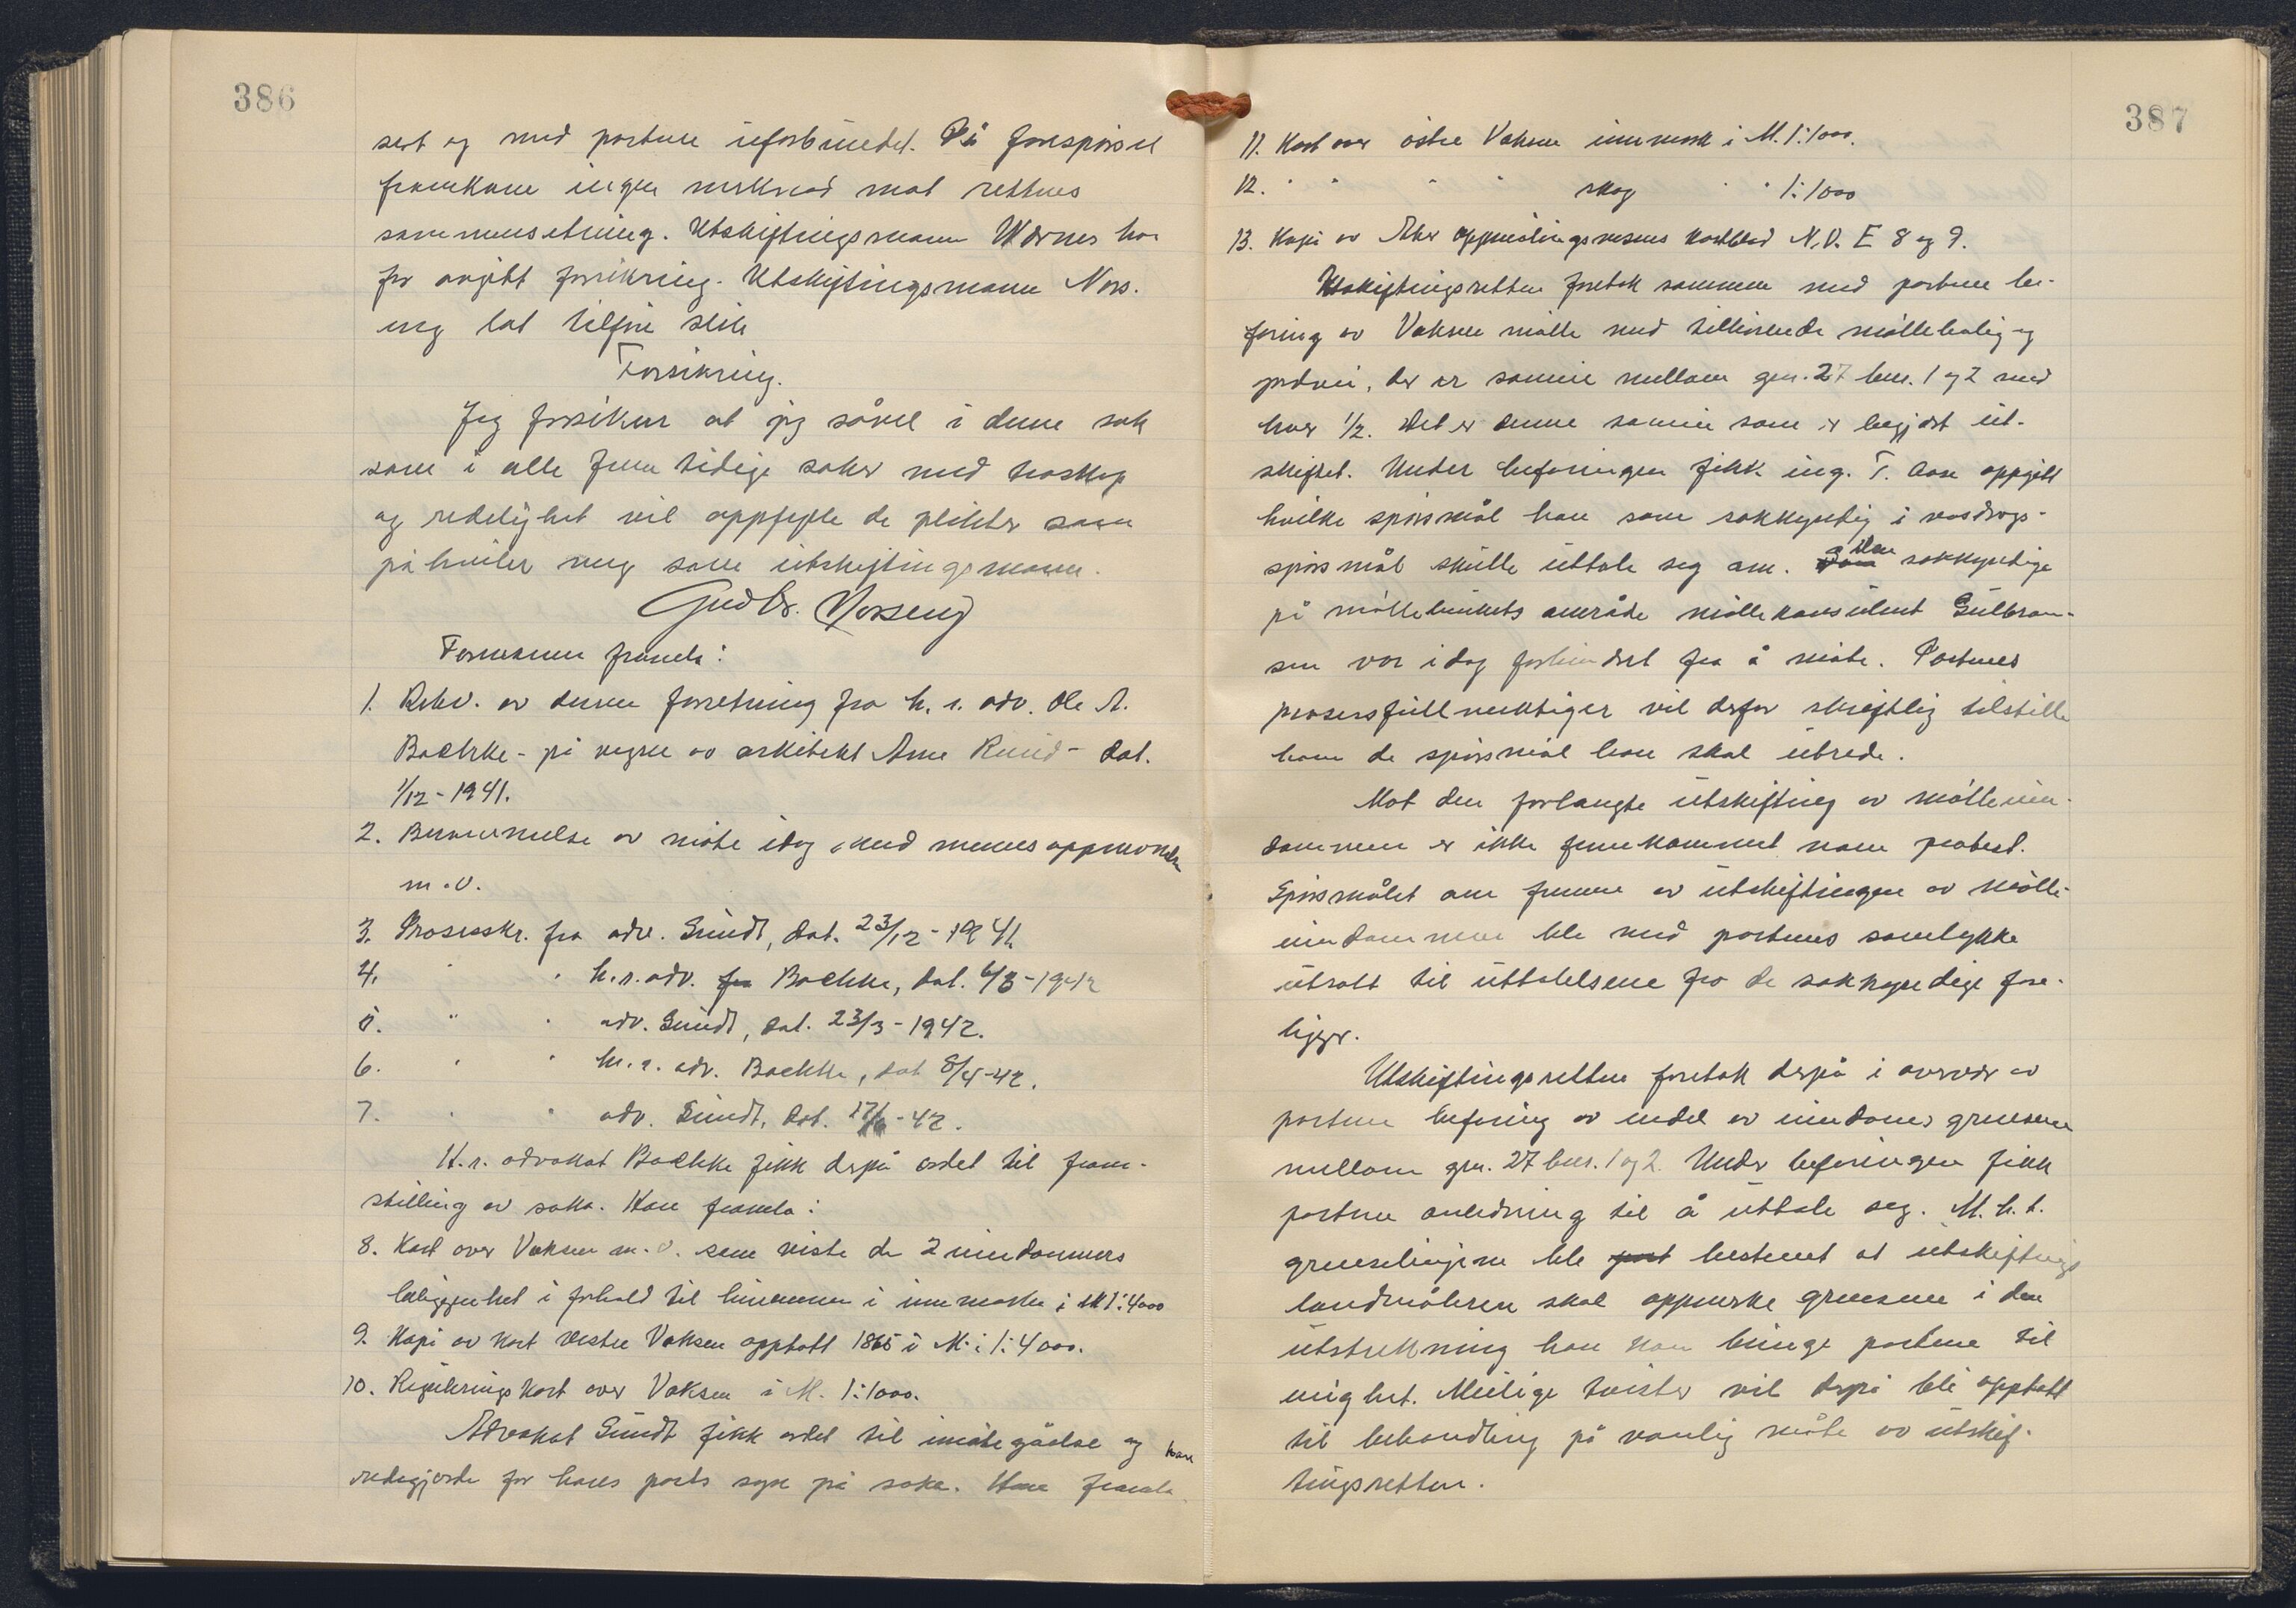 386
sert og med partene uforbundet. På forespørsel
framkom ingen merknad mot rettens
sammensetning. Utskiftingsmann Wærnes har
før avgitt forsikring. Utskiftingsmann Nors-
eng lot tilføie slik
Forsikring.
Jeg forsikrer at jeg såvel i denne sak
som i alle fremtidige saker med troskap
og redelighet vil oppfylle de plikter som
påhviler meg som utskiftingsmann.
Gudbr. Norseng
Formannen framla:
1. Rekv. av denne forretning fra h.r. adv. Ole A.
Bachke - på vegne av arkitekt Arne Ruud - dat.
1/12-1941.
2. Berammelse av møte idag, med menns oppnevnelse
m.v.
3. Prosesskr. fra adv. Sundt, dat. 23/12-1941
4. " " h.r. adv. fra Bachke, dat. 6/3-1942
5. " " adv. Sundt, dat. 23/3-1942.
6. " " h.r. adv. Bachke, dat 8/4-42.
7. " " adv. Sundt, dat. 17/6-42.
H.r. advokat Bachke fikk derpå ordet til fram-
stilling av saka. Han framla:
8. Kart over Voksen m.v. som viste de 2 eiendommers
beliggenhet i forhold til hinannen i innmarka i M 1:4000
9. Kopi av kart vestre Voksen opptatt 1865 i M. i 1:4000.
10. Reguleringskart over Voksen i M. 1:1000.
Advokat Sundt fikk ordet til imøtegåelse og han
redegjorde for hans parts syn på saka. Han framla
387
11. Kart over østre Voksen innmark i M. 1:1000.
12. " " " " skog " " 1:1000
13. Kopi av Aker oppmålingsvesens kartblad N.V. E 8 og 9.
Utskiftingsretten foretok sammen med partene be-
faring av Voksen mølle med tilhørende møllebolig og
prdvei, der er sameie mellom gnr. 27 bnr. 1 og 2 med
hver 1/2. Det er denne sameie som er begjært ut-
skiftet. Under befaringen fikk ing. T. Aase oppgitt
hvilke spørsmål han som sakkyndig i vasdrags-
spørsmål skulle uttale seg om. Den sakkyndige
på møllebrukets område møllekonsulent Gulbran-
sen var idag forhindret fra å møte. Partenes
prosessfullmektiger vil derfor skriftlig tilstille
ham de spørsmål han skal utrede.
Mot den forlangte utskifting av mølleein-
dommen er ikke fremkommet noen protest.
Spørsmålet om fremme av utskiftingen av mølle-
eiendommen ble med partenes samtykke
utsatt til uttalelsene fra de sakkyndige fore-
ligger.
Utskiftingsretten foretok derpå i overvær av
partene befaring av endel av eiendoms grensene
mellom gnr. 27 bnr. 1 og 2. Under befaringen fikk
partene anledning til å uttale seg. M.h.t.
grenselinjene ble bestemt at utskiftnings
landmåleren skal oppmerke grensene i den
utstrekning han kan bringe partene til
enighet. Mulige tvister vil derpå bli opptatt
til behandling på vanlig måte av utskif-
tingsretten.